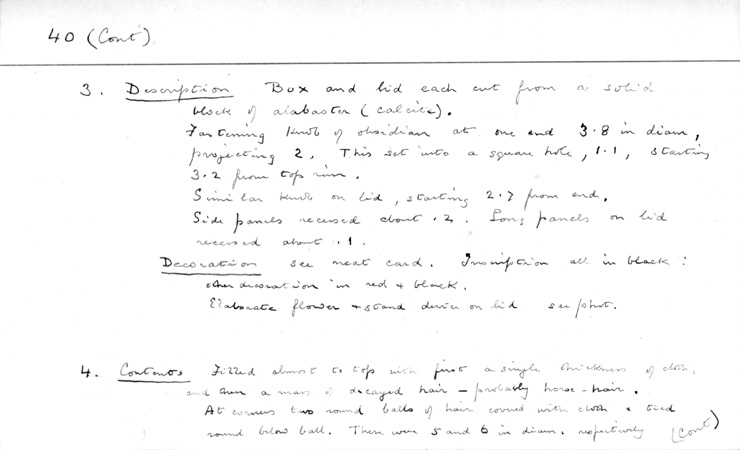 40 (Cont)
3. Description Box and lid each cut from a solid
block of alabaster (calcite).
Fastening knob of obsidian at one end 3.8 in diam,
projecting 2. This set into a square hole, 1.1, starting
3.2 from top rim.
Similar knob on lid, starting 2.7 from end.
Side panels recessed about .2. Long panels on lid
recessed about .1.
Decoration see next card. Inscription all in black:
other decoration in red + black.
Elaborate flower + stand device on lid see phot.
4. Contents Filled almost to top with first a single thickness of cloth,
and then a mass of decayed hair - probably horse-hair.
At corners two round balls of hair covered with cloth & tied
round below ball. These were 5 and 6 in diam. respectively (Cont)